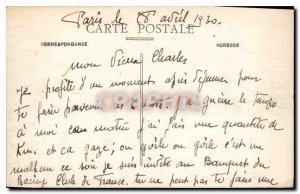 Paris le 8 avril 1930.
CARTE POSTALE
CORRESPONDANCE
ADRESSE
mon Vieux Charles
Je profite d'un moment après déjeuner pour
te faire parvenir je n'ai guère le temps
à moi ce matin j'ai fais une quantité de
Km. et ca gaze; ou
malheur ce soir je suis invité au Banquet du
Racing Club de France. tu ne peut pas te faire une